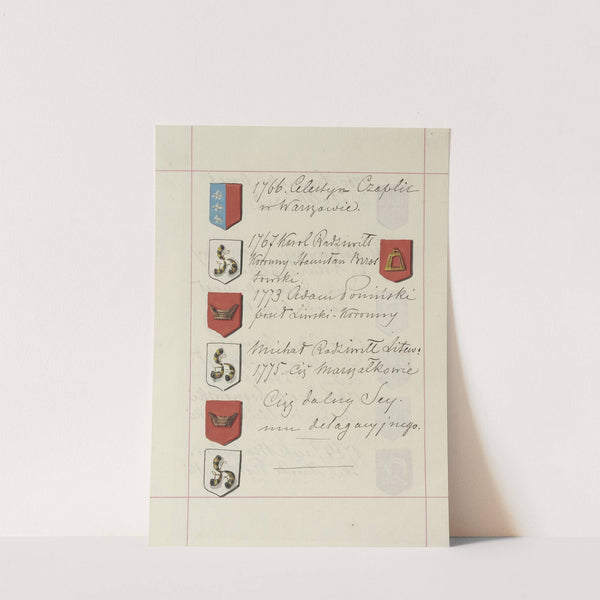 1766. Celestyn Czaplic
w Warszawie.
1767 Karol Radziwiłł
Koronny Stanisław Brzos
towski
1773. Adam Poniński
poseł Liwski - Koronny
Michał Radziwiłł Litew:
1775. Ciż Marszałkowie
Ciąg dalszy Sey-
mu delagacyjnego.